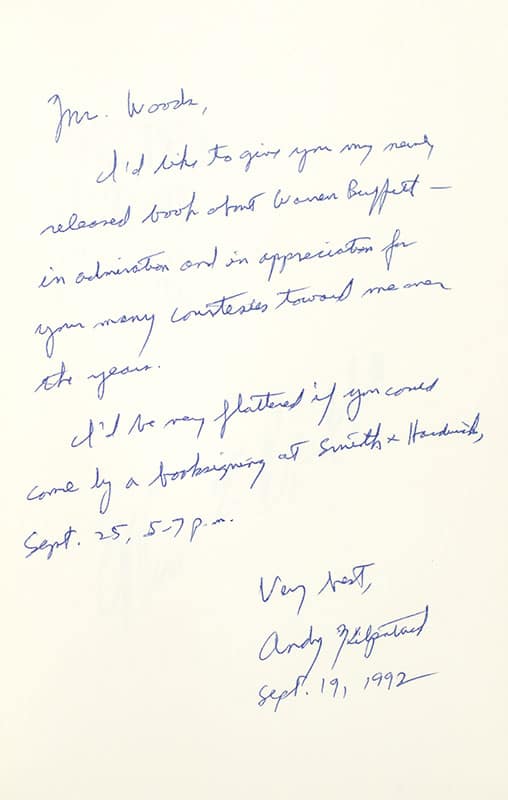 Mr. Woods,
I'd like to give you my newly
released book about Warren Buffett —
in admiration and in appreciation for
your many courtesies toward me over
the years.
I'd be very flattered if you could
come by a booksigning at Smith & Hardwick,
Sept. 25, 5-7 p.m.
Very best,
Andy Kilpatrick
Sept. 19, 1992